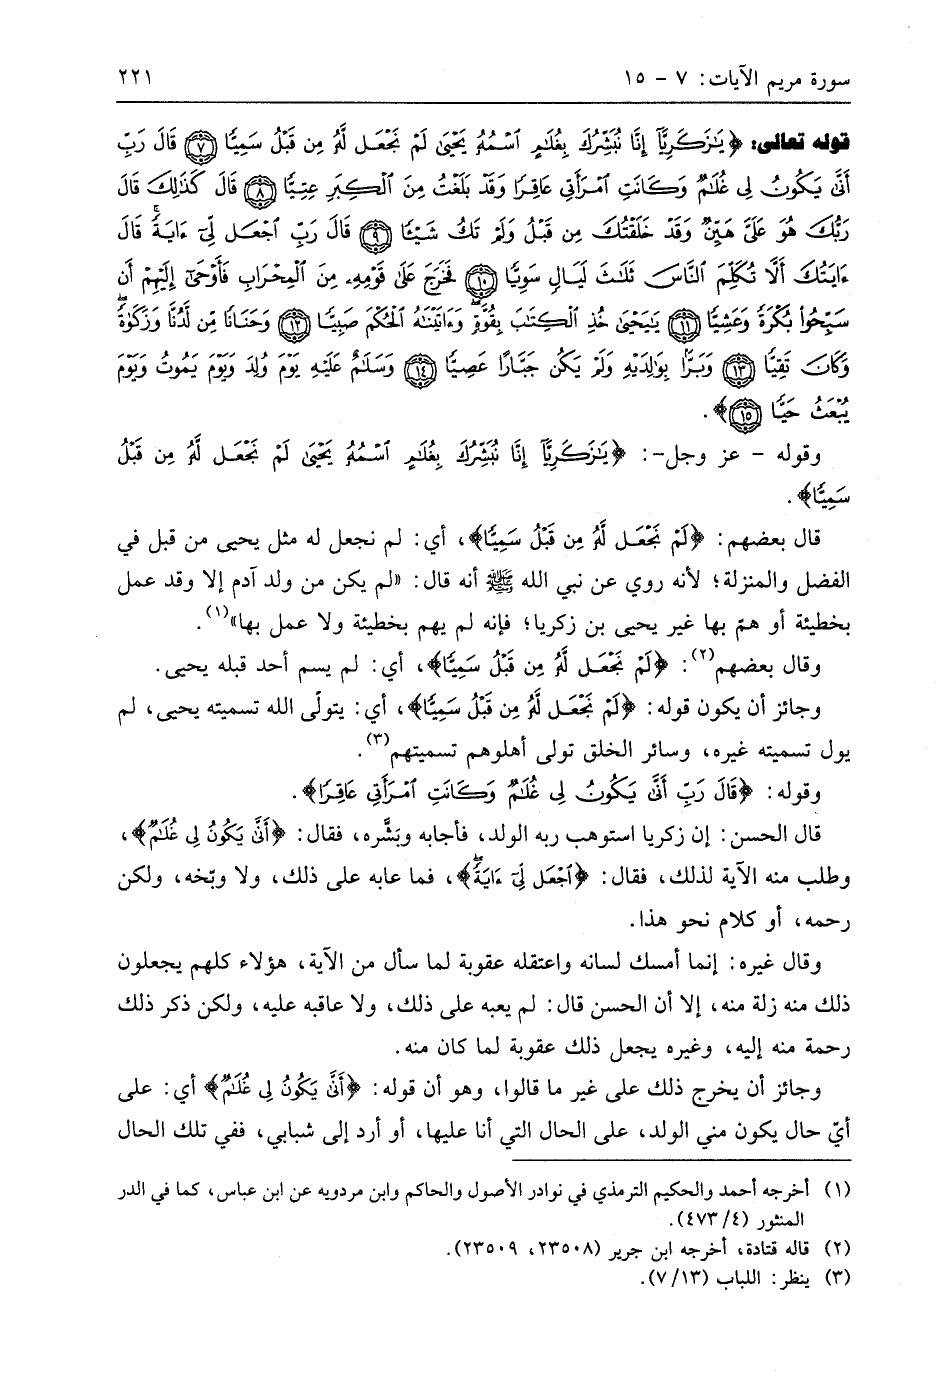 سورة مريم الآيات: ٧ - ١٥
٢٢١
قوله تعالى: ﴿يَٰزَكَرِيَّآ إِنَّا نُبَشِّرُكَ بِغُلَٰمٍ ٱسْمُهُۥ يَحْيَىٰ لَمْ نَجْعَل لَّهُۥ مِن قَبْلُ سَمِيًّا ﴿٧﴾ قَالَ رَبِّ
أَنَّىٰ يَكُونُ لِى غُلَٰمٌ وَكَانَتِ ٱمْرَأَتِى عَاقِرًا وَقَدْ بَلَغْتُ مِنَ ٱلْكِبَرِ عِتِيًّا ﴿٨﴾ قَالَ كَذَٰلِكَ قَالَ
رَبُّكَ هُوَ عَلَىَّ هَيِّنٌ وَقَدْ خَلَقْتُكَ مِن قَبْلُ وَلَمْ تَكُ شَيْـًٔا ﴿٩﴾ قَالَ رَبِّ ٱجْعَل لِّىٓ ءَايَةً ۚ قَالَ
ءَايَتُكَ أَلَّا تُكَلِّمَ ٱلنَّاسَ ثَلَٰثَ لَيَالٍ سَوِيًّا ﴿١٠﴾ فَخَرَجَ عَلَىٰ قَوْمِهِۦ مِنَ ٱلْمِحْرَابِ فَأَوْحَىٰٓ إِلَيْهِمْ أَن
سَبِّحُوا۟ بُكْرَةً وَعَشِيًّا ﴿١١﴾ يَٰيَحْيَىٰ خُذِ ٱلْكِتَٰبَ بِقُوَّةٍ ۖ وَءَاتَيْنَٰهُ ٱلْحُكْمَ صَبِيًّا ﴿١٢﴾ وَحَنَانًا مِّن لَّدُنَّا وَزَكَوٰةً ۖ
وَكَانَ تَقِيًّا ﴿١٣﴾ وَبَرًّۢا بِوَٰلِدَيْهِ وَلَمْ يَكُن جَبَّارًا عَصِيًّا ﴿١٤﴾ وَسَلَٰمٌ عَلَيْهِ يَوْمَ وُلِدَ وَيَوْمَ يَمُوتُ وَيَوْمَ
يُبْعَثُ حَيًّا ﴿١٥﴾﴾.
وقوله - عز وجل-: ﴿يَٰزَكَرِيَّآ إِنَّا نُبَشِّرُكَ بِغُلَٰمٍ ٱسْمُهُۥ يَحْيَىٰ لَمْ نَجْعَل لَّهُۥ مِن قَبْلُ
سَمِيًّا﴾.
قال بعضهم: ﴿لَمْ نَجْعَل لَّهُۥ مِن قَبْلُ سَمِيًّا﴾، أي: لم نجعل له مثل يحيى من قبل في
الفضل والمنزلة؛ لأنه روي عن نبي الله ﷺ أنه قال: «لم يكن من ولد آدم إلا وقد عمل
بخطيئة أو همّ بها غير يحيى بن زكريا؛ فإنه لم يهم بخطيئة ولا عمل بها»(١).
وقال بعضهم(٢): ﴿لَمْ نَجْعَل لَّهُۥ مِن قَبْلُ سَمِيًّا﴾، أي: لم يسم أحد قبله يحيى.
وجائز أن يكون قوله: ﴿لَمْ نَجْعَل لَّهُۥ مِن قَبْلُ سَمِيًّا﴾، أي: يتولّى الله تسميته يحيى، لم
يول تسميته غيره، وسائر الخلق تولى أهلوهم تسميتهم(٣).
وقوله: ﴿قَالَ رَبِّ أَنَّىٰ يَكُونُ لِى غُلَٰمٌ وَكَانَتِ ٱمْرَأَتِى عَاقِرًا﴾.
قال الحسن: إن زكريا استوهب ربه الولد، فأجابه وبَشَّره، فقال: ﴿أَنَّىٰ يَكُونُ لِى غُلَٰمٌ﴾،
وطلب منه الآية لذلك، فقال: ﴿ٱجْعَل لِّىٓ ءَايَةً ۖ﴾، فما عابه على ذلك، ولا وبّخه، ولكن
رحمه، أو كلام نحو هذا.
وقال غيره: إنما أمسك لسانه واعتقله عقوبة لما سأل من الآية، هؤلاء كلهم يجعلون
ذلك منه زلة منه، إلا أن الحسن قال: لم يعبه على ذلك، ولا عاقبه عليه، ولكن ذكر ذلك
رحمة منه إليه، وغيره يجعل ذلك عقوبة لما كان منه.
وجائز أن يخرج ذلك على غير ما قالوا، وهو أن قوله: ﴿أَنَّىٰ يَكُونُ لِى غُلَٰمٌ﴾ أي: على
أيّ حال يكون مني الولد، على الحال التي أنا عليها، أو أرد إلى شبابي، ففي تلك الحال
(١) أخرجه أحمد والحكيم الترمذي في نوادر الأصول والحاكم وابن مردويه عن ابن عباس، كما في الدر
المنثور (٤/ ٤٧٣).
(٢) قاله قتادة، أخرجه ابن جرير (٢٣٥٠٨، ٢٣٥٠٩).
(٣) ينظر: اللباب (٧/١٣).